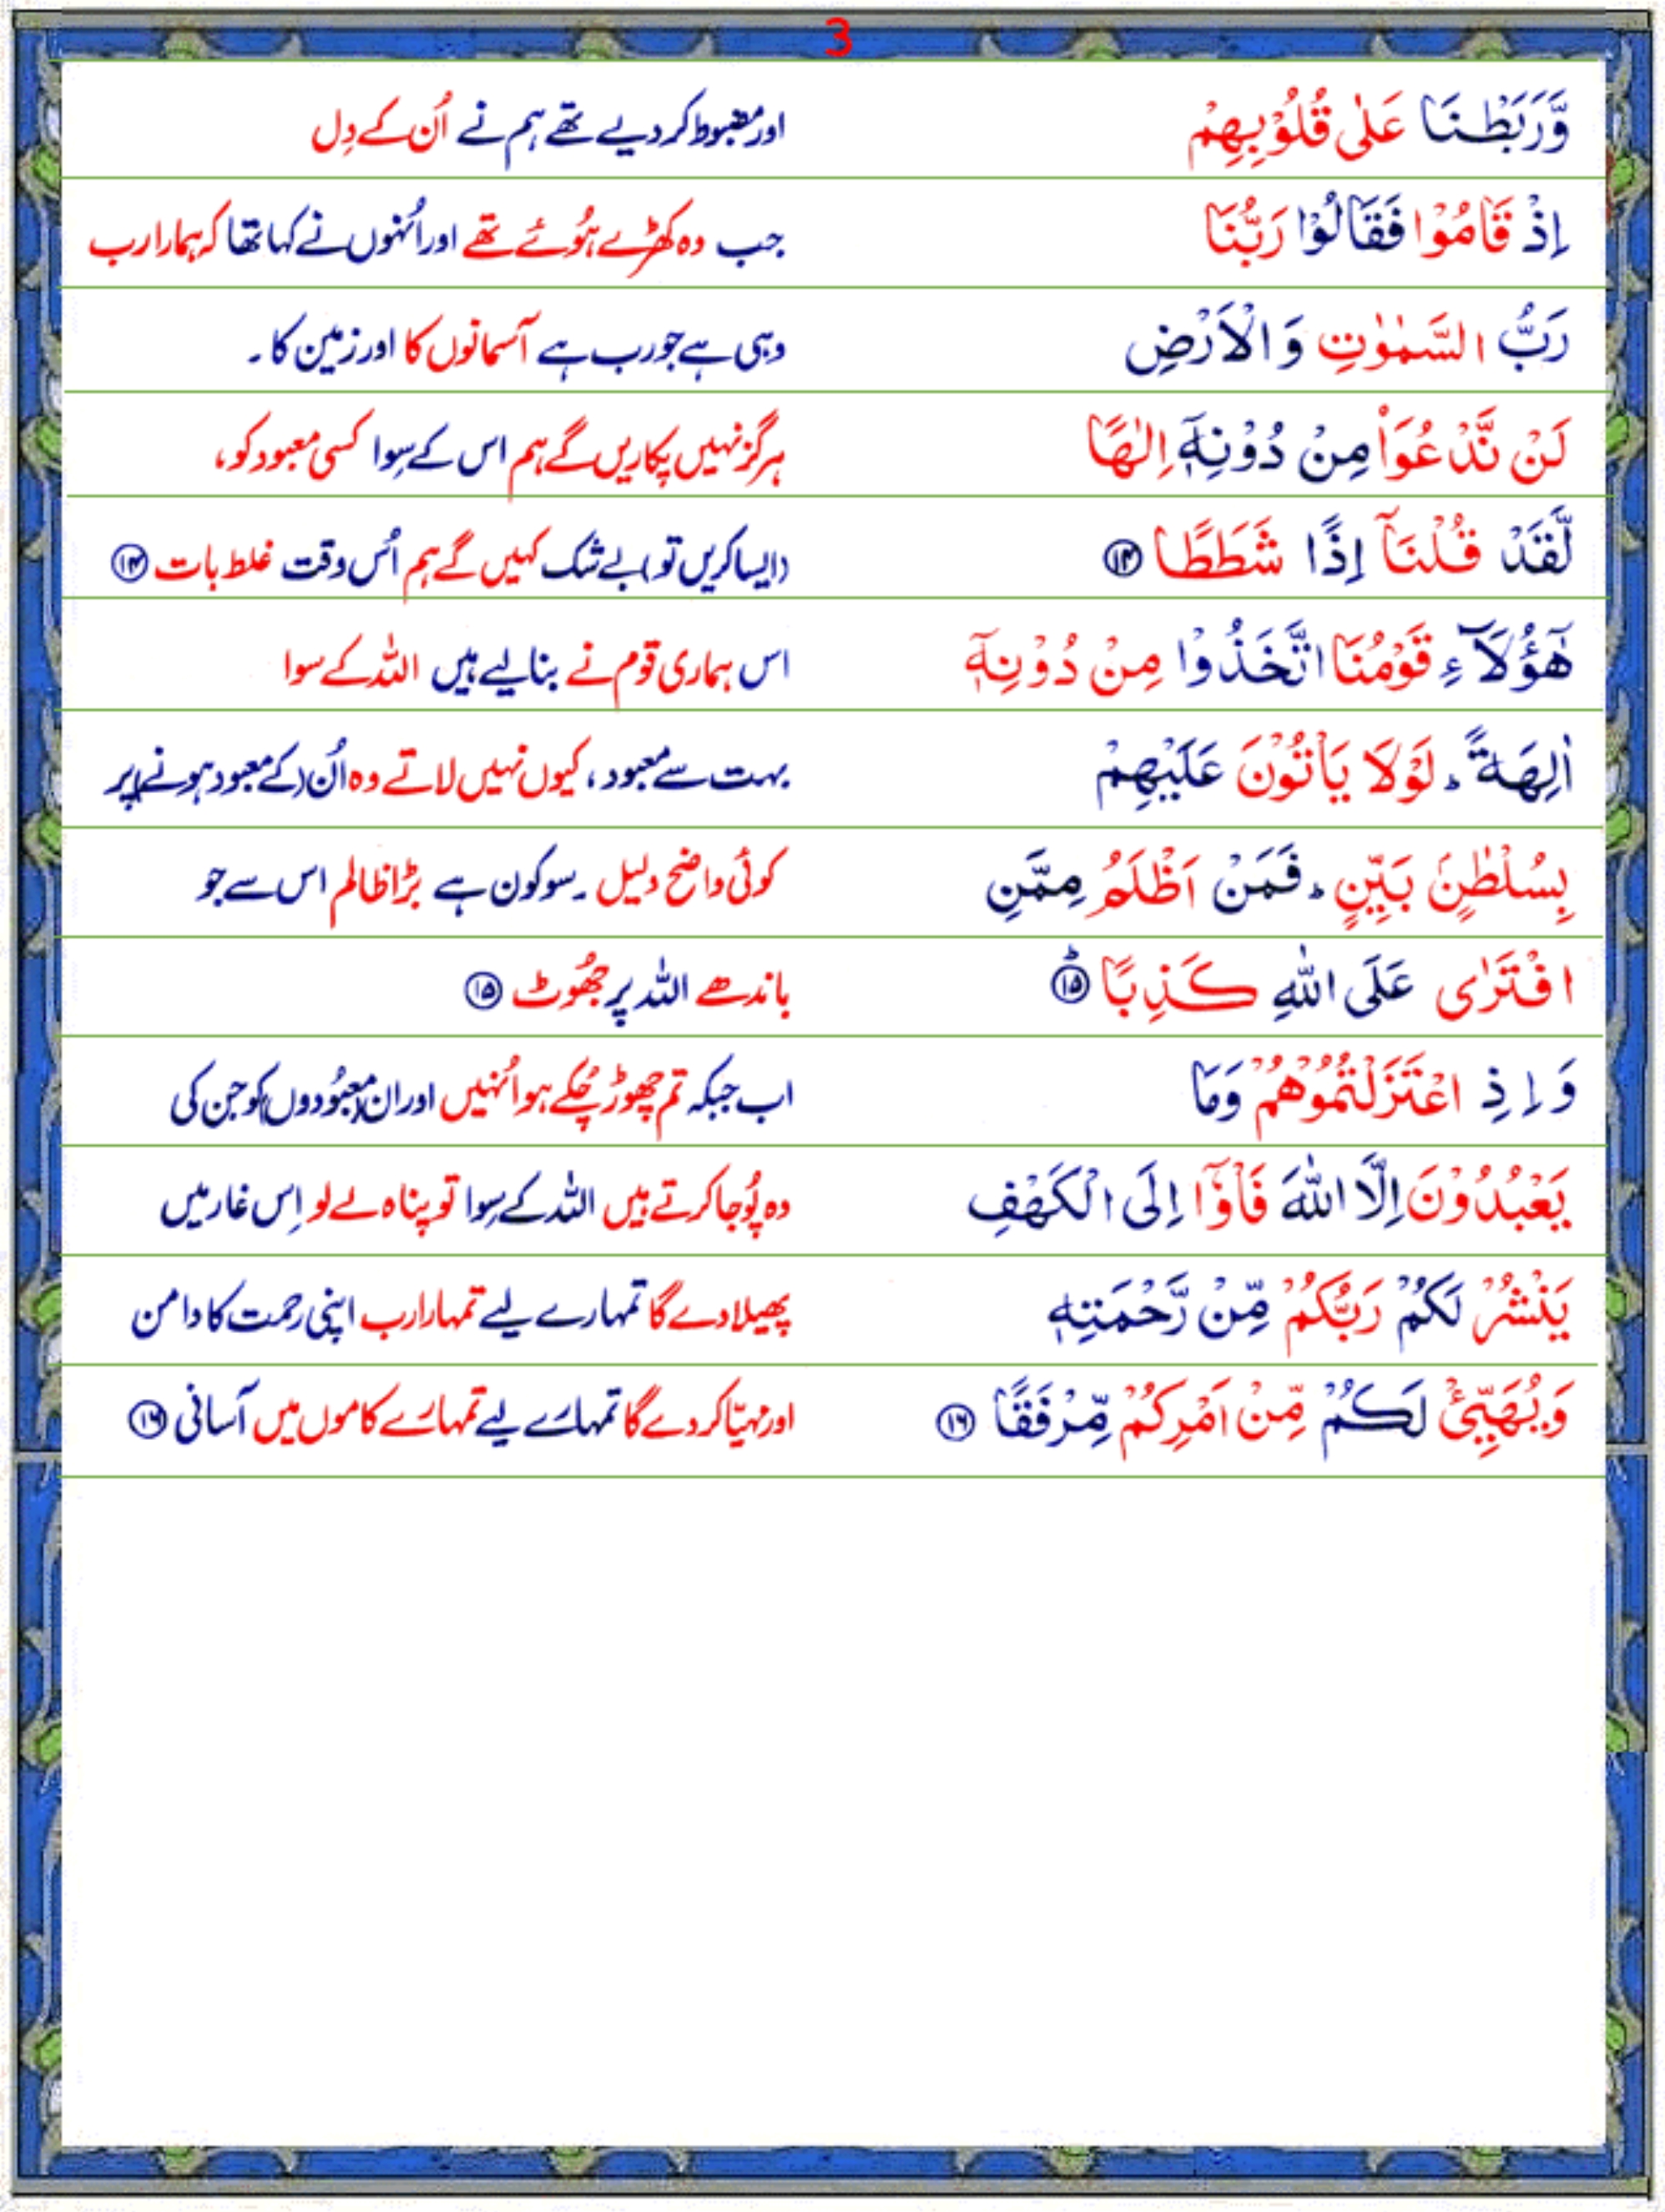 3
وَّرَبَطْنَا عَلٰى قُلُوْبِهِمْ اور مضبوط کر دیے تھے ہم نے اُن کے دِل
اِذْ قَامُوْا فَقَالُوْا رَبُّنَا جب وہ کھڑے ہُوئے تھے اور اُنہوں نے کہا تھا کہ ہمارا رب
رَبُّ السَّمٰوٰتِ وَ الْاَرْضِ وہی ہے جو رب ہے آسمانوں کا اور زمین کا ۔
لَنْ نَّدْعُوَا۟ مِنْ دُوْنِهٖۤ اِلٰهًا ہرگز نہیں پکاریں گے ہم اس کے سِوا کسی معبود کو،
لَّقَدْ قُلْنَاۤ اِذًا شَطَطًا ۱۴ (ایسا کریں تو) بے شک کہیں گے ہم اُس وقت غلط بات ۱۴
هٰۤؤُلَآءِ قَوْمُنَا اتَّخَذُوْا مِنْ دُوْنِهٖۤ اس ہماری قوم نے بنا لیے ہیں اللہ کے سوا
اٰلِهَةً ؕ لَوْلَا يَاْتُوْنَ عَلَيْهِمْ بہت سے معبود ، کیوں نہیں لاتے وہ اُن (کے معبود ہونے) پر
بِسُلْطٰنٍۭ بَيِّنٍ ؕ فَمَنْ اَظْلَمُ مِمَّنِ کوئی واضح دلیل ۔ سو کون ہے بڑا ظالم اس سے جو
افْتَرٰى عَلَى اللّٰهِ كَذِبًا ۱۵ؕ باندھے اللہ پر جھُوٹ ۱۵
وَ اِذِ اعْتَزَلْتُمُوْهُمْ وَمَا اب جبکہ تم چھوڑ چُکے ہو اُنہیں اور ان (معبُودوں) کو جن کی
يَعْبُدُوْنَ اِلَّا اللّٰهَ فَاْوٗۤا اِلَى الْكَهْفِ وہ پُوجا کرتے ہیں اللہ کے سِوا تو پناہ لے لو اِس غار میں
يَنْشُرْ لَكُمْ رَبُّكُمْ مِّنْ رَّحْمَتِهٖ پھیلا دے گا تمہارے لیے تمہارا رب اپنی رحمت کا دامن
وَيُهَيِّئْ لَكُمْ مِّنْ اَمْرِكُمْ مِّرْفَقًا ۱۶ اور مہیّا کر دے گا تمہارے لیے تمہارے کاموں میں آسانی ۱۶